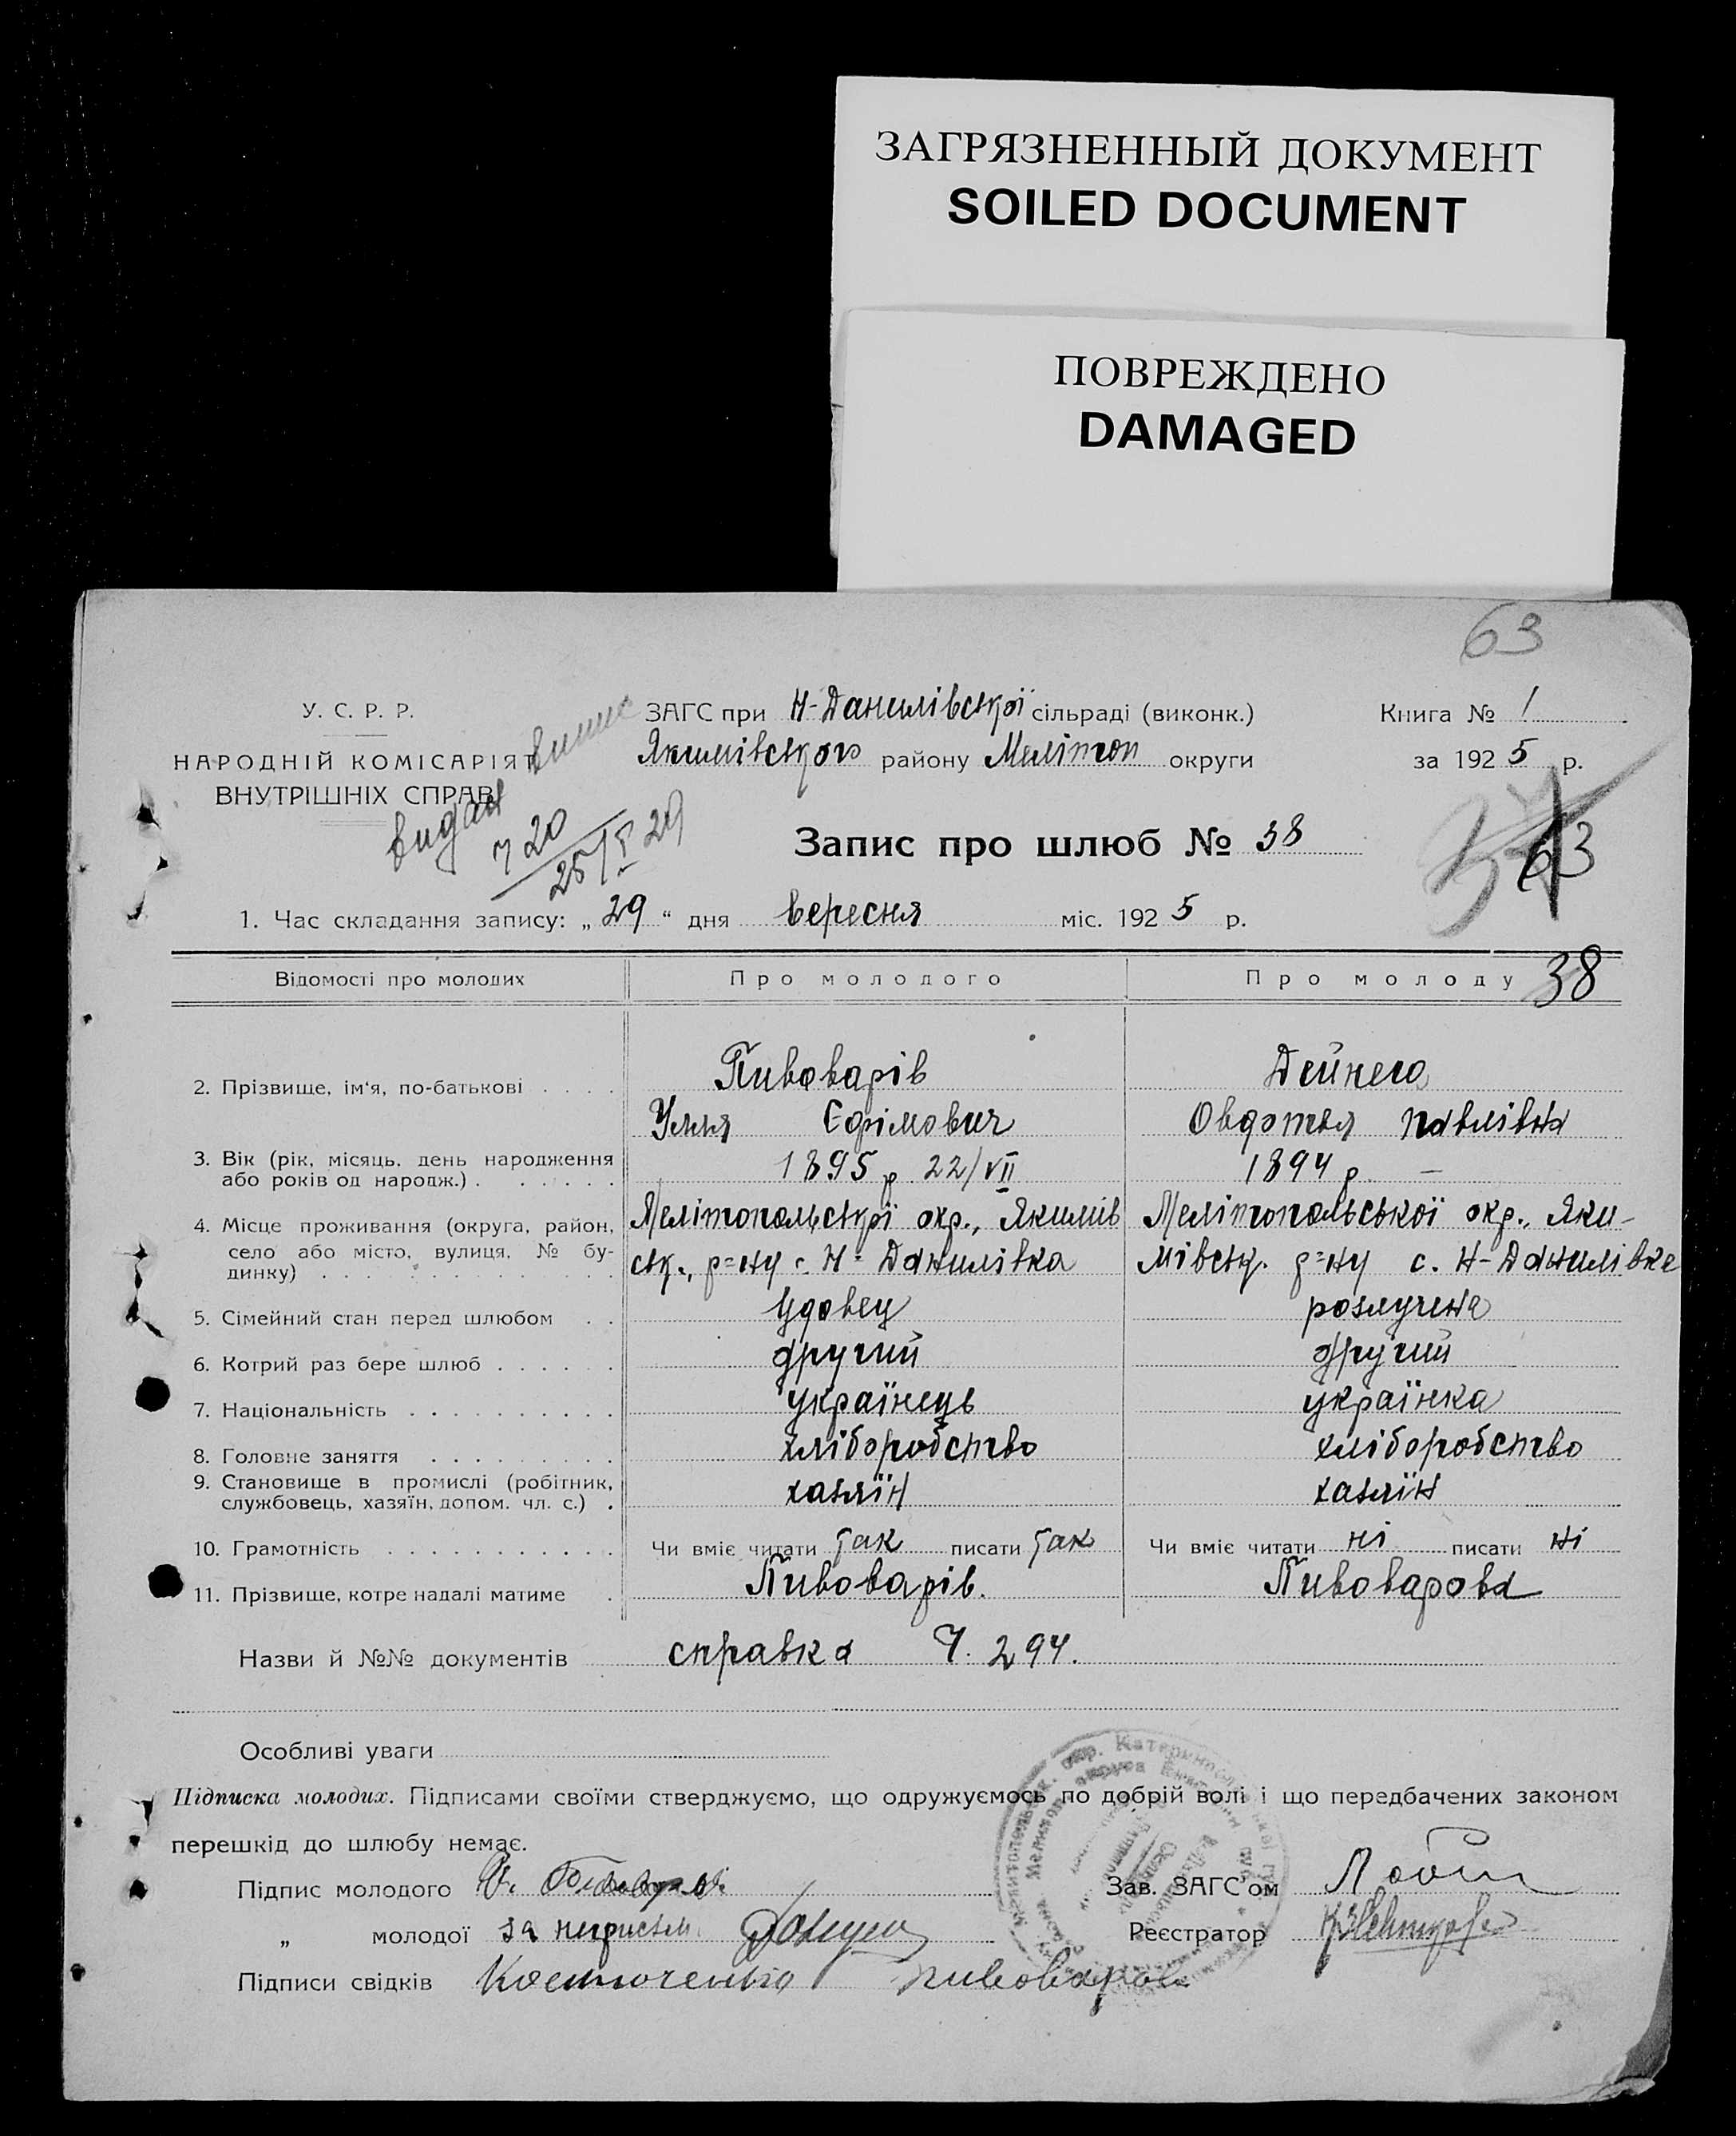 ЗАГРЯЗНЕННЫЙ ДОКУМЕНТ
SOILED DOCUMENT
ПОВРЕЖДЕНО
DAMAGED
63
У. С. Р. Р.
НАРОДНІЙ КОМІСАРІЯТ
ВНУТРІШНІХ СПРАВ
видан
720
25/V 29
ЗАГС при Н-Данилівської сільраді (виконк.)
Якимівського району Мелітоп округи
Книга № 1
за 1925 р.
Запис про шлюб № 38
63
1. Час складання запису: „29“ дня вересня міс. 1925 р.
Відомості про молодих Про молодого Про молоду 38
2. Прізвище, ім'я, по-батькові . . . . Пивоварів Дейнега
Улля Єфімович Овдотья Павлівна
3. Вік (рік, місяць, день народження або років од народж.) . . . . . . 1895 р 22/VII 1894 р. —
4. Місце проживання (округа, район, село або місто, вулиця, № будинку) . . . Мелітопольської окр., Якимів Мелітопольської окр., Яки-
ськ., р=ну с. Н=Данилівка мівськ. р=ну с. Н-Данилівке
5. Сімейний стан перед шлюбом . . Удовец розлучена
6. Котрий раз бере шлюб . . . . . другий другий
7. Національність . . . . . . . . . українець українка
8. Головне заняття . . . . . . . . хліборобство хліборобство
9. Становище в промислі (робітник, службовець, хазяїн, допом. чл. с.) . хазяїн хазяїн
10. Грамотність . . . . . . . . . . Чи вміє читати так писати так Чи вміє читати ні писати ні
11. Прізвище, котре надалі матиме . Пивоварів. Пивоварова
Назви й №№ документів справка Ч. 294.
Особливі уваги
Підписка молодих. Підписами своїми стверджуємо, що одружуємось по добрій волі і що передбачених законом
перешкід до шлюбу немає.
Підпис молодого
Зав. ЗАГС'ом
„ молодої за неписьм.
Реєстратор
Підписи свідків Костюченко Пивоваров